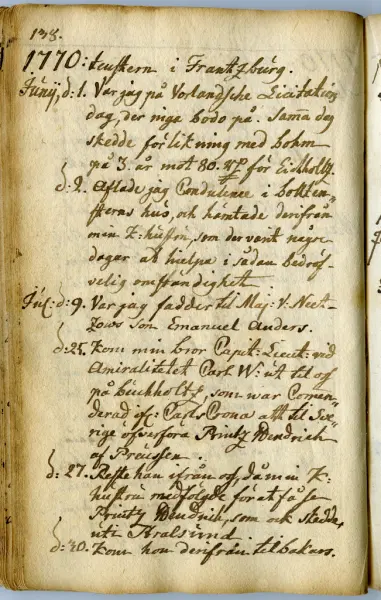 138.
1770: kusktern i Frantzburg.
Junij, d: 1. War jag på Vorlandsche Licitations
dag, der inga bodo på. Samma dag
skedde förlikning med bohm
på 3. år mot 80. rP för Eichholtz.
d: 2. Aflade jag Condulence i botten-
sterns hus, och hämtade derifrån
min K: hustru, som der varit någre
dagar at hielpa i sådan bedröf-
velig omständighet.
Jul: d: 9. War jag fadder til Maj: V: Neet-
zows son Emanuel Anders.
d: 25. Kom min bror Capit: Lieut: vid
Amiralitetet Carl W: ut til oss
på buchholtz, som war Comen-
derad if: CarlsCrona att til Swe-
rige öfverföra Printz Hendrich
af Preussen.
d: 27. Reste han ifrån oss, då min K:
hustru medfölgde för at få se
Printz Hendrich, som ock skedde,
uti Stralsund.
d: 30. Kom hon derifrån tilbakars.